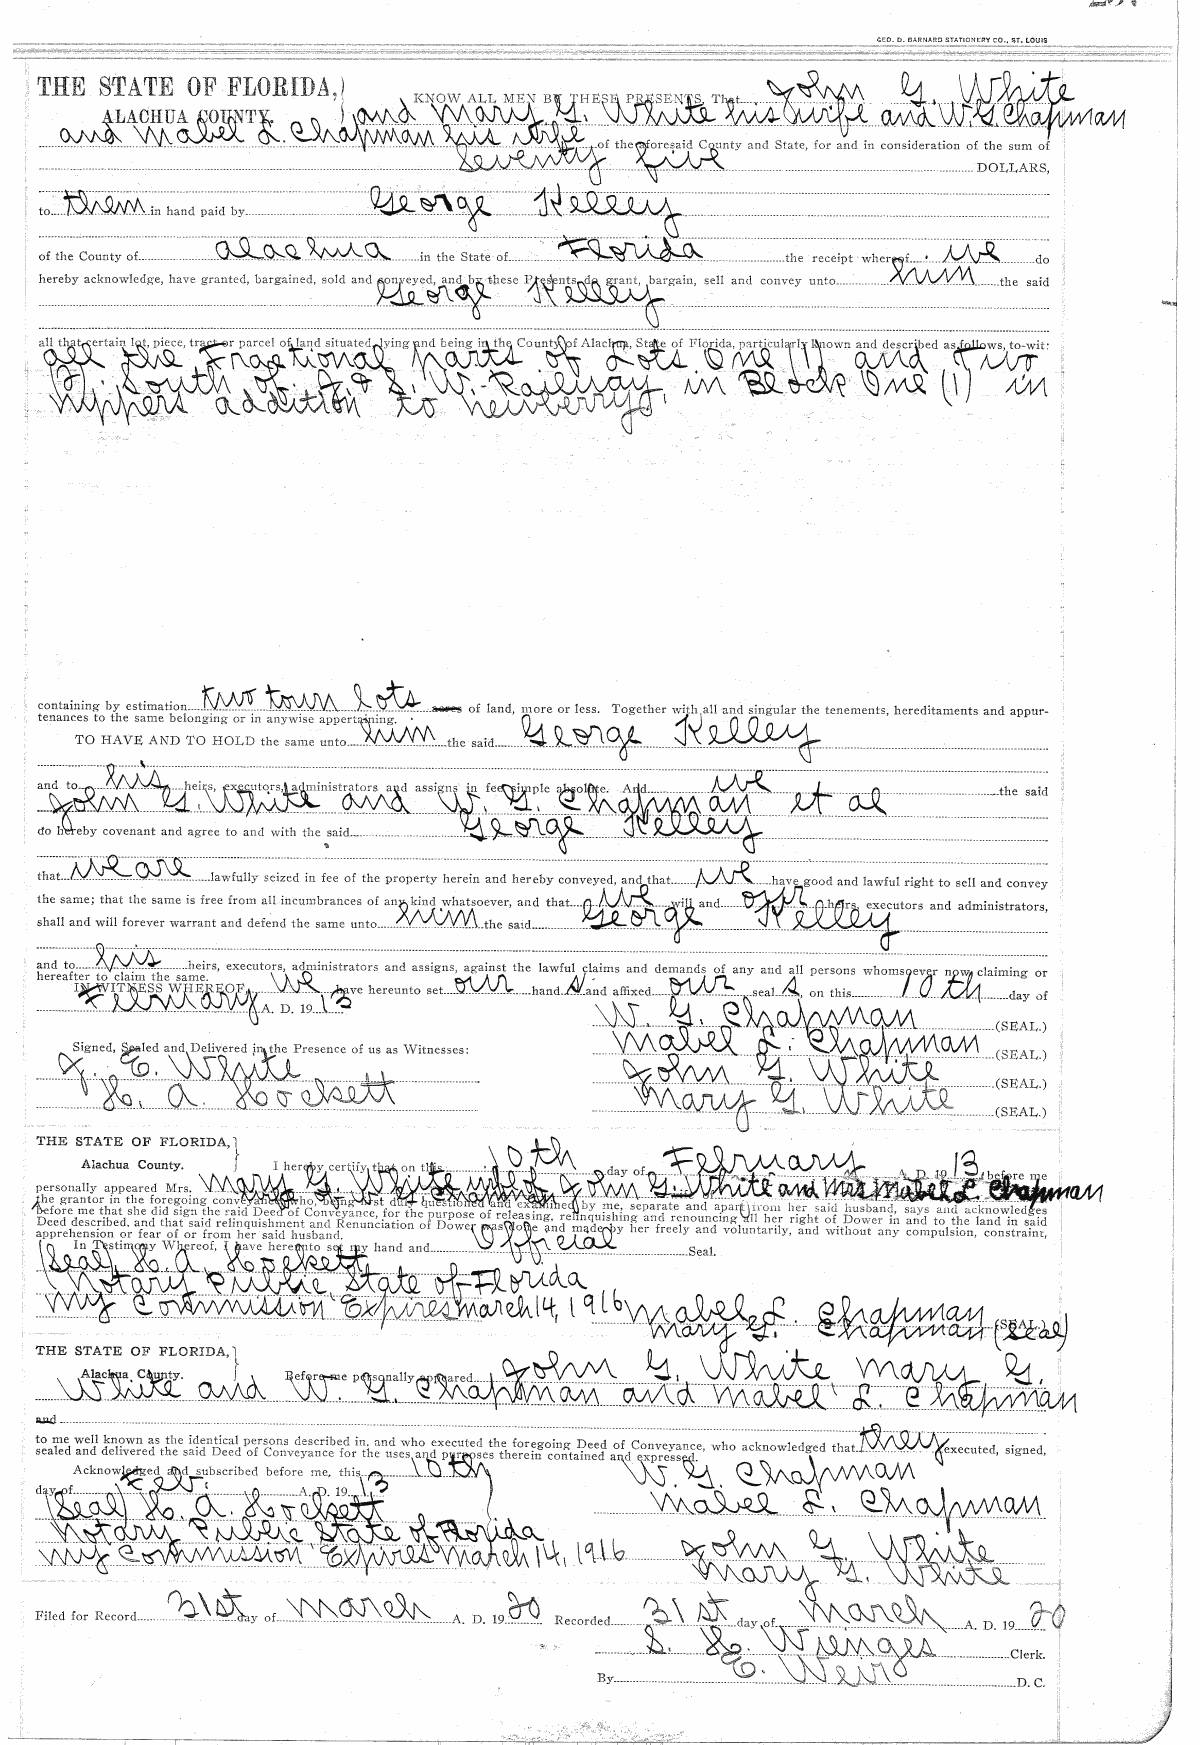 GEO. D. BARNARD STATIONERY CO., ST. LOUIS
THE STATE OF FLORIDA,
ALACHUA COUNTY. KNOW ALL MEN BY THESE PRESENTS, That John G. White
and Mary G. White his wife and W. G. Chapman
and Mabel L. Chapman his wife of the aforesaid County and State, for and in consideration of the sum of
Seventy five DOLLARS,
to them in hand paid by George Kelley
of the County of Alachua in the State of Florida the receipt whereof we do
hereby acknowledge, have granted, bargained, sold and conveyed, and by these Presents do grant, bargain, sell and convey unto him the said
George Kelley
all that certain lot, piece, tract or parcel of land situated, lying and being in the County of Alachua, State of Florida, particularly known and described as follows, to-wit:
all the Fractional parts of Lots One (1) and Two
(2) South of J & S. W. Railway, in Block One (1) in
addition to Newberry,
containing by estimation two town lots acres of land, more or less. Together with all and singular the tenements, hereditaments and appur-
tenances to the same belonging or in anywise appertaining.
TO HAVE AND TO HOLD the same unto him the said George Kelley
and to his heirs, executors, administrators and assigns in fee simple absolute. And we the said
John G. White and W. G. Chapman et al
do hereby covenant and agree to and with the said George Kelley
that we are lawfully seized in fee of the property herein and hereby conveyed, and that we have good and lawful right to sell and convey
the same; that the same is free from all incumbrances of any kind whatsoever, and that we will and our heirs, executors and administrators,
shall and will forever warrant and defend the same unto him the said George Kelley
and to his heirs, executors, administrators and assigns, against the lawful claims and demands of any and all persons whomsoever now claiming or
hereafter to claim the same.
IN WITNESS WHEREOF, We have hereunto set our hand s and affixed our seal s, on this 10th day of
February A. D. 19 13
W. G. Chapman (SEAL.)
Signed, Sealed and Delivered in the Presence of us as Witnesses: Mabel L. Chapman (SEAL.)
J. E. White John G. White (SEAL.)
H. A. Hockett Mary G. White (SEAL.)
THE STATE OF FLORIDA,
Alachua County. I hereby certify that on this 10th day of February A. D. 19 13 before me
personally appeared Mrs. Mary G. White wife of John G. White and Mrs Mabel L. Chapman
the grantor in the foregoing conveyance, who being first duly questioned and examined by me, separate and apart from her said husband, says and acknowledges
before me that she did sign the said Deed of Conveyance, for the purpose of releasing, relinquishing and renouncing all her right of Dower in and to the land in said
Deed described, and that said relinquishment and Renunciation of Dower was done and made by her freely and voluntarily, and without any compulsion, constraint,
apprehension or fear of or from her said husband.
In Testimony Whereof, I have hereunto set my hand and Official Seal.
(Seal) H. A. Hockett
Notary Public State of Florida
My Commission Expires March 14, 1916 Mabel L. Chapman (SEAL.)
Mary G. Chapman (Seal)
THE STATE OF FLORIDA,
Alachua County. Before me personally appeared John G. White Mary G.
White and W. G. Chapman and Mabel L. Chapman
and
to me well known as the identical persons described in, and who executed the foregoing Deed of Conveyance, who acknowledged that they executed, signed,
sealed and delivered the said Deed of Conveyance for the uses and purposes therein contained and expressed.
Acknowledged and subscribed before me, this 10th W. G. Chapman
day of Feb. A. D. 19 13
(Seal) H. A. Hockett Mabel L. Chapman
Notary Public State of Florida
My Commission Expires March 14, 1916 John G. White
Mary G. White
Filed for Record 31st day of March A. D. 19 20 Recorded 31st day of March A. D. 19 20
S. H. Wienges Clerk.
By E. Weir D. C.